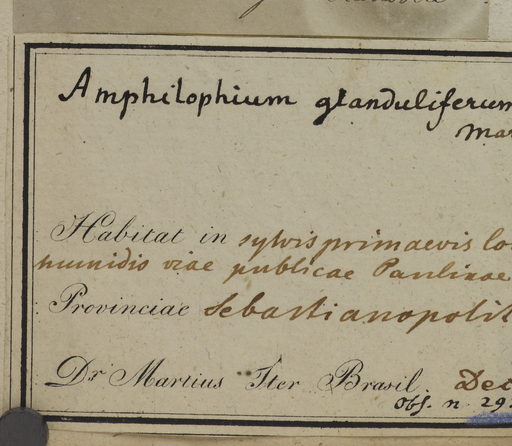 Amphilophium glanduliferum
Mar
Habitat in sylvis primaevis lo
humidis viae publicae Paulinae
Provinciae Sebastianopolit
Dr Martius Iter Brasil. Dec
Obs. n. 29.